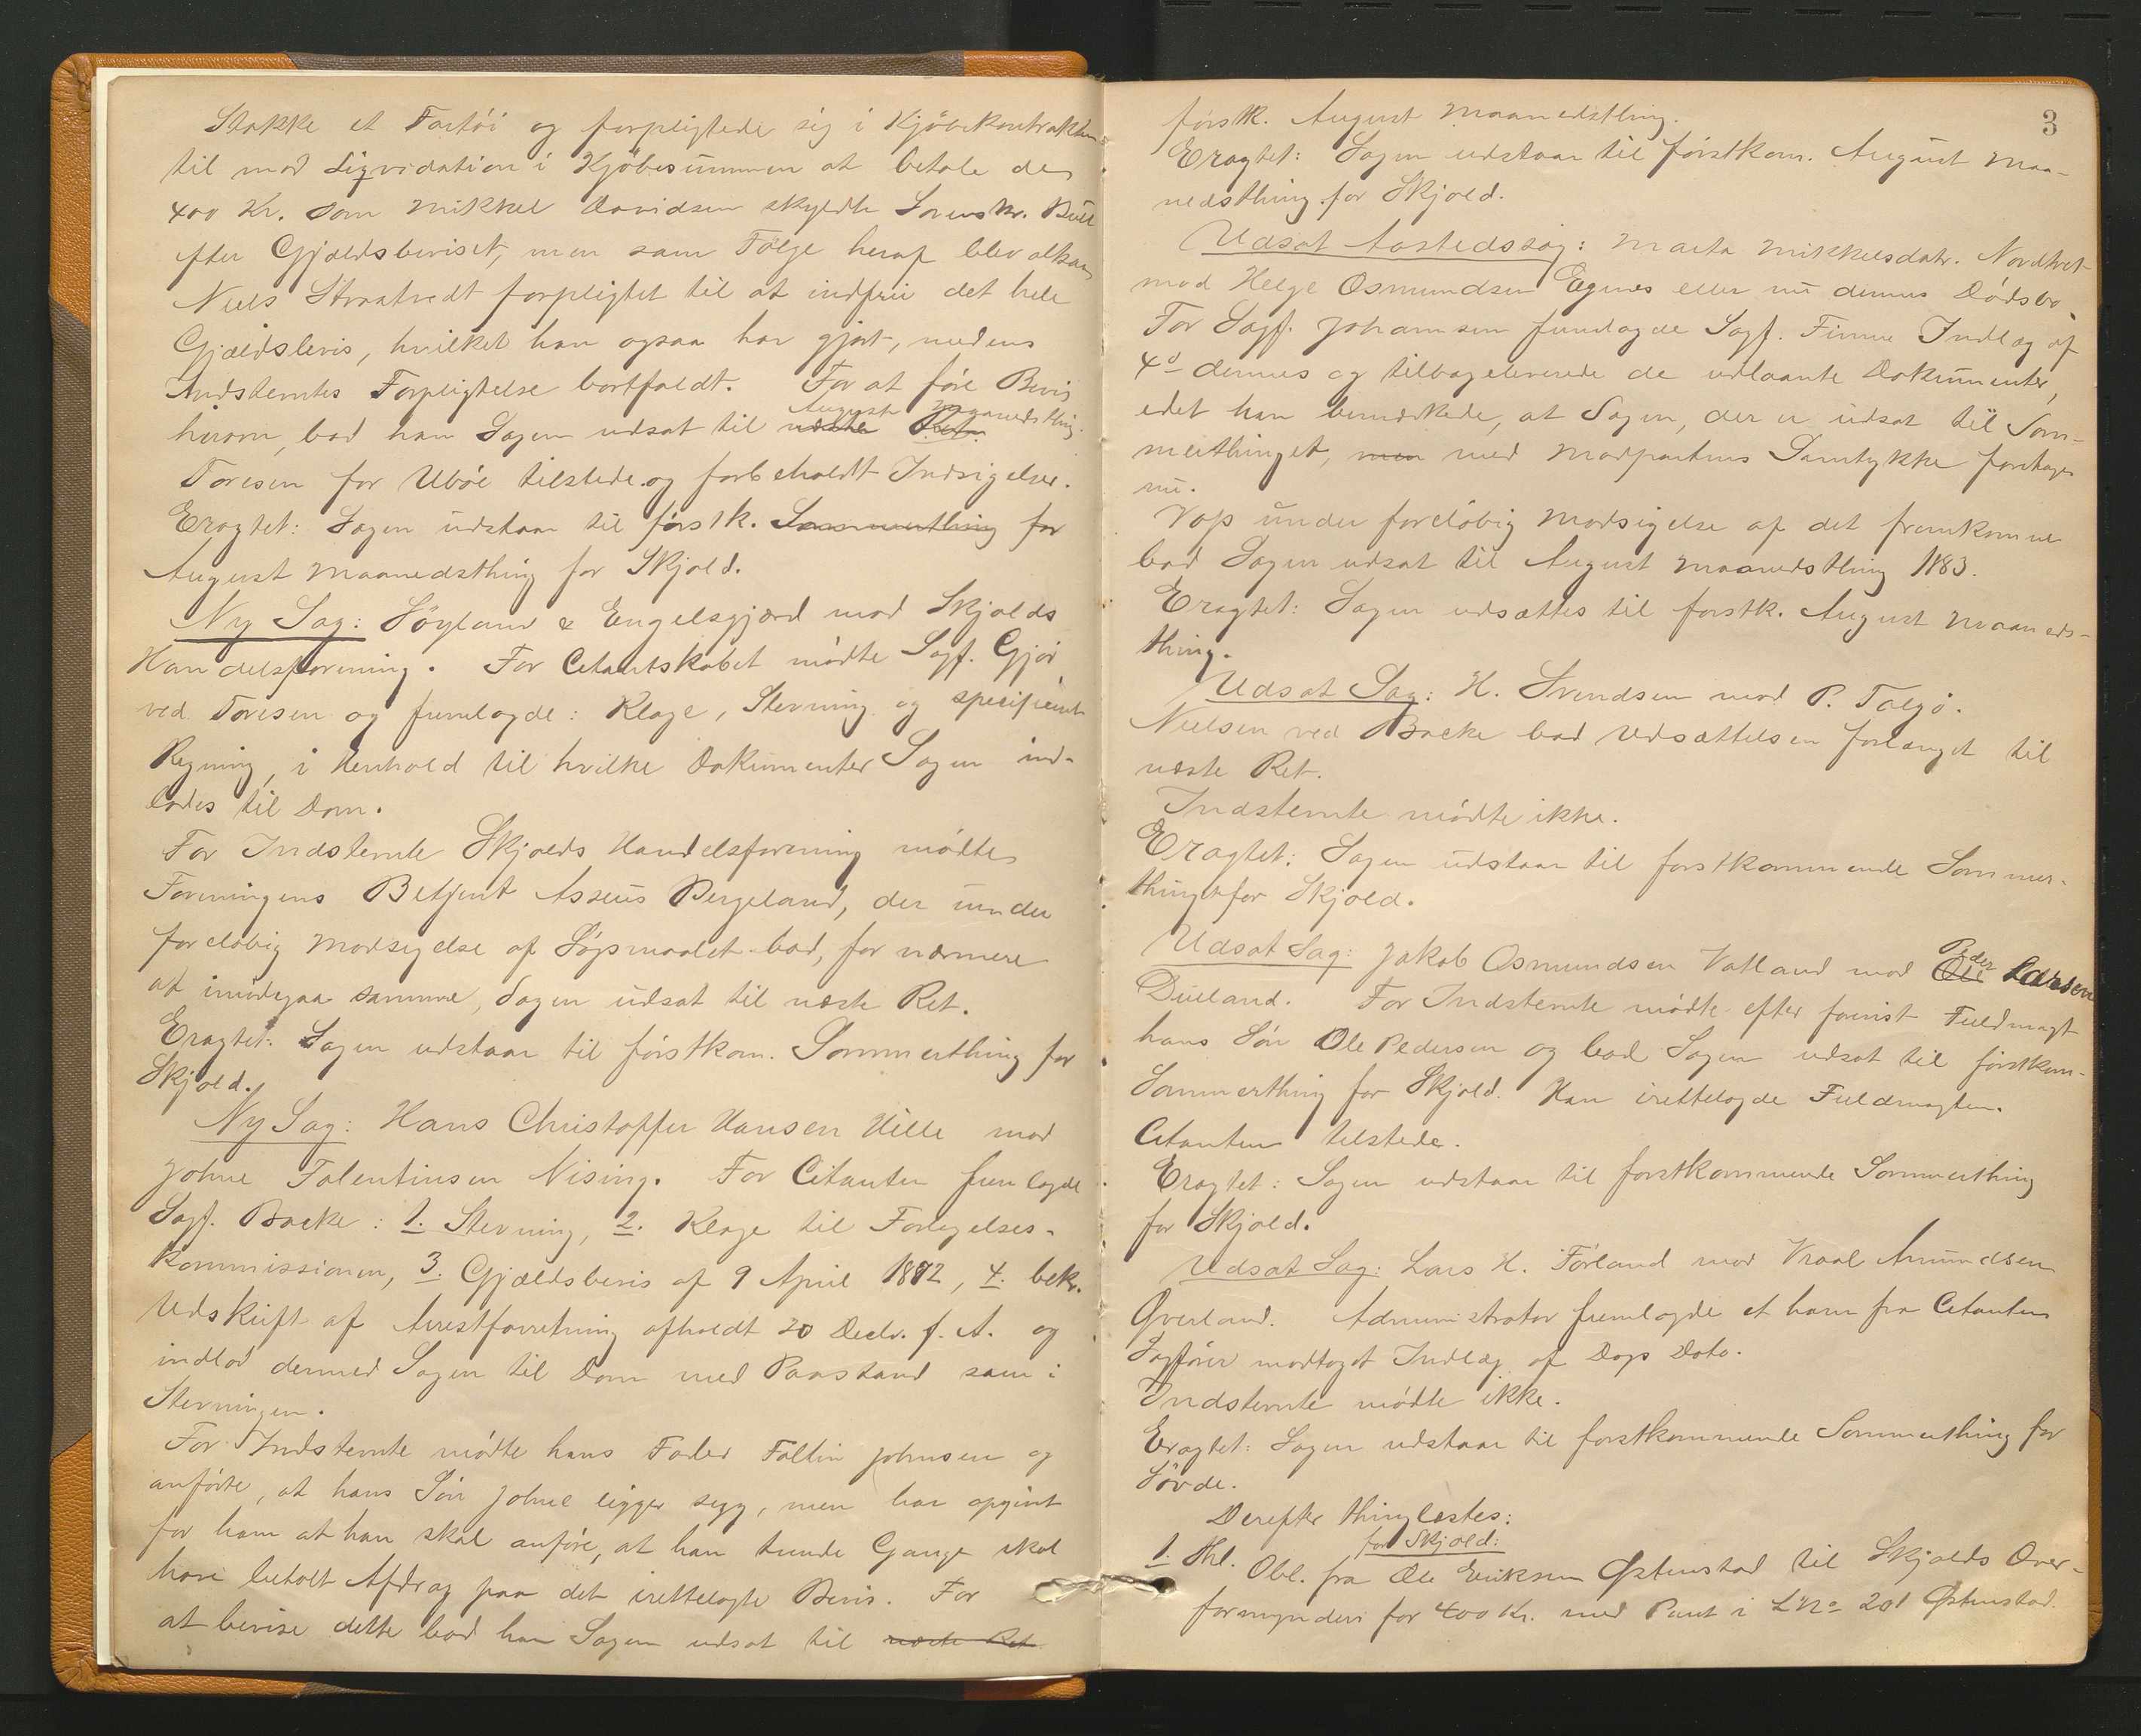 Stakke et Fartöi og forpligtede sig i Kjöbekontrakten
til mod Liqvidation i Kjöbesummen at betale de
400 Kr. som Mikkel Davidsen skyldte Lars Kr. Bue
efter Gjældsbeviset, men som Fölge heraf blev altsaa
Niels Straatvedt forpligtet til at indfrie det hele
Gjældsbevis, hvilket han ogsaa har gjort, medens
Indstevntes Forpligtelse bortfaldt. For at före Bevis
August Maanedsthing.
herom, bad han Sagen udsat til næste Ret.
Toresen for Uböe tilstede og forbeholdt Indsigelser.
Eragtet: Sagen udstaar til förstk. Sommerthing for
August Maanedsthing for Skjold.
Ny Sag: Söyland & Engelsgjærd mod Skjolds
Handelsforening. For Citantskabet mödte Sagf. Gjör
ved Toresen og fremlagde: Klage, Stevning og specificeret
Regning, i Henhold til hvilke Dokumenter Sagen ind-
lodes til Dom.
For Indstevnte Skjolds Handelsforening mödte
Foreningens Betjent Asseus Bergeland, der under
foreløbig Modsigelse af Søgsmaalet bad, for nærmere
at imödegaa samme, Sagen udsat til næste Ret.
Eragtet: Sagen udstaar til förstkom. Sommerthing for
Skjold.
Ny Sag: Hans Christoffer Hansen Hille mod
Johne Talentinsen Nising. For Citanten fremlagde
Sagf. Backe: 1. Stevning, 2. Klage til Forligelses-
kommissionen, 3. Gjældsbevis af 9 April 1882, 4. bekr.
Udskrift af Arrestforretning afholdt 20 Decbr. f. A. og
indlod dermed Sagen til Dom med Paastand som i
Stevningen.
For Indstevnte mödte hans Fader Faltin Johnsen og
anförte, at hans Sön Johne ligger syg, men har opgivet
for ham at han skal anföre, at han tvende Gange skal
have betalt Afdrag paa det irettelagte Bevis. For
at bevise dette bad han Sagen udsat til næste Ret
3
förstk. August Maanedsthing.
Eragtet: Sagen udstaar til förstkom. August Maa-
nedsthing for Skjold.
Udsat Aastedssag: Marta Mikkelsdatr. Nordtvet
mod Helge Osmundsen Egenes eller nu dennes Dödsbo.
For Sagf. Johannsen fremlagde Sagf. Finne Indlæg af
4d dennes og tilbageleverede de udlaante Dokumenter,
idet han bemærkede, at Sagen, der er udsat til Som-
merthinget, men med Modpartens Samtykke foretages
nu.
Vops under foreløbig Modsigelse af det fremkomne
bad Sagen udsat til August Maanedsthing 1883.
Eragtet: Sagen udsættes til førstk. August Maaneds-
thing.
Udsat Sag: H. Svendsen mod P. Talgö.
Nielsen ved Backe bad Udsættelsen forlænget til
næste Ret.
Indstevnte mödte ikke.
Eragtet: Sagen udstaar til førstkommende Sommer-
thing for Skjold.
Peder
Udsat Sag: Jakob Osmundsen Vatland mod Ole Larsen
Dueland. For Indstevnte mödte efter forevist Fuldmagt
hans Sön Ole Pedersen og bad Sagen udsat til förstkom-
Sommerthing for Skjold. Han irettelagde Fuldmagten.
Citanten tilstede.
Eragtet: Sagen udstaar til förstkommende Sommerthing
for Skjold.
Udsat Sag: Lars H. Förland mod Vraal Amundsen
Qverland. Administrator fremlagde et ham fra Citantens
Sagförer modtaget Indlæg af Dags Dato.
Indstevnte mödte ikke.
Eragtet: Sagen udstaar til förstkommende Sommerthing for
Sövde.
Derefter thinglæstes:
for Skjold:
1. Thl. Obl. fra Ole Eriksen Østenstad til Skjolds Over-
formynderi for 400 Kr. med Pant i L No 201 Østenstad.